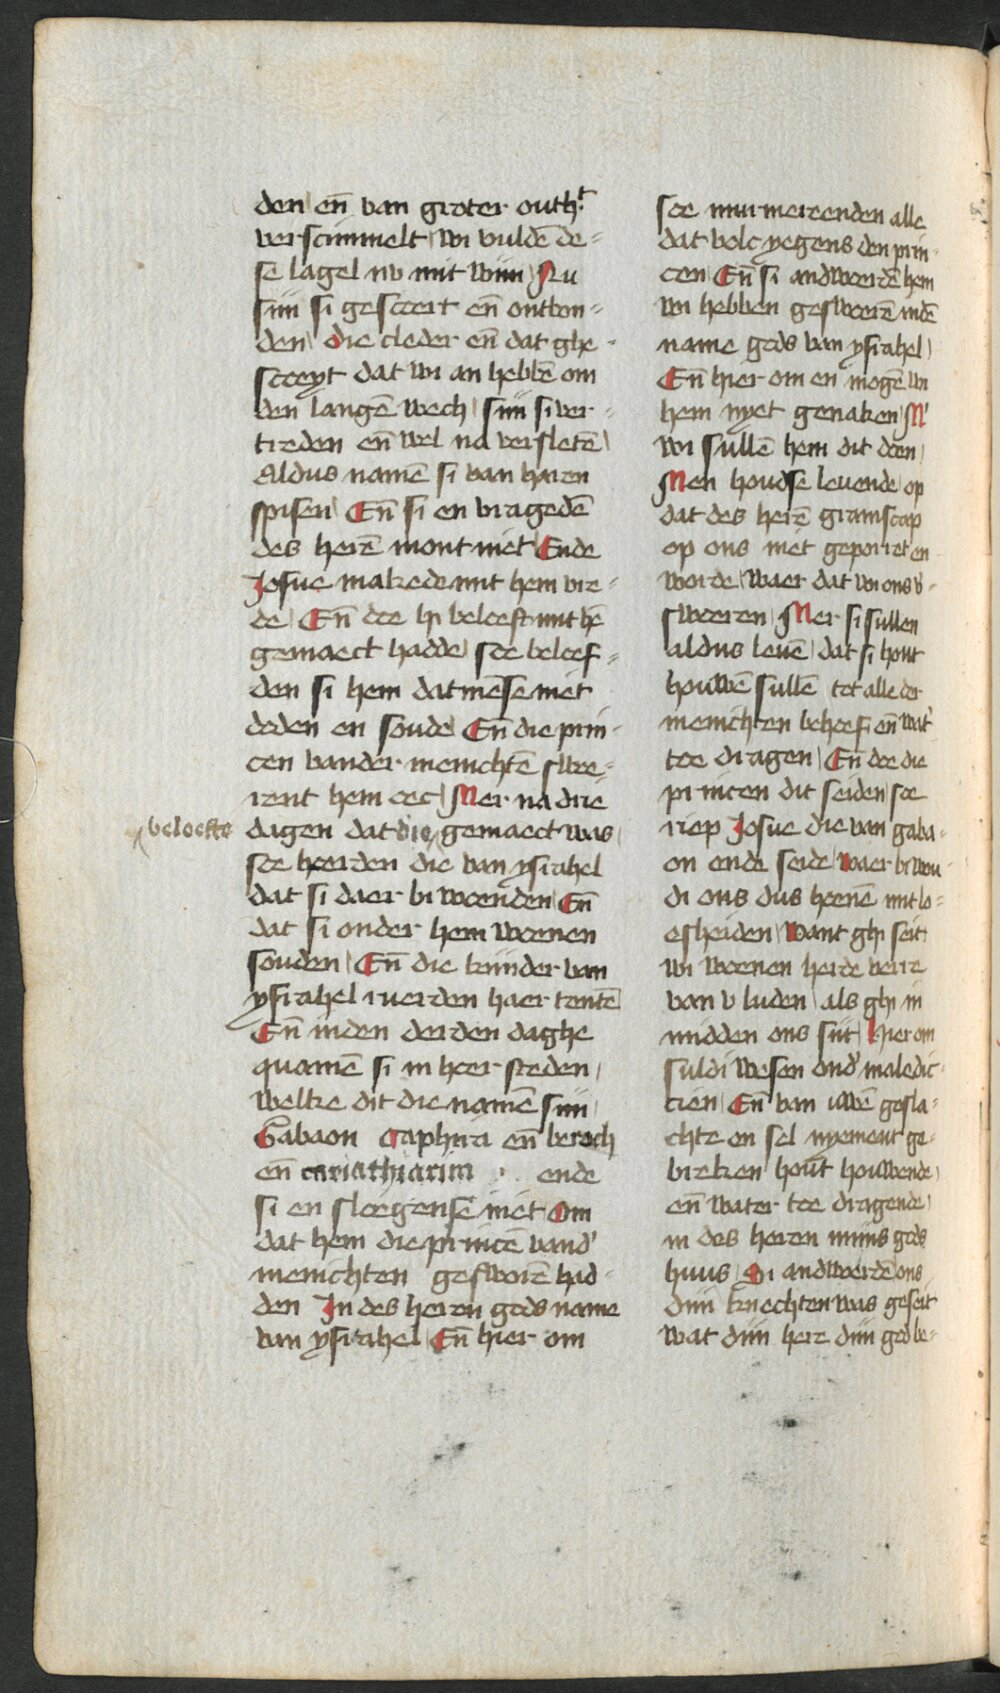 den en̄ van groter outh't
verscimmelt wi vuldē de=
se lagel nv mit wijn Nu
sijn si gescoert en̄ ontbon=
den die cleder en̄ dat ghe-
scoeyt dat wi an hebbē om
den langē wech sijn si ver-
treden en̄ wel na versletē
Aldus namē si van haren
spisen En̄ si en vragedē
des herē mont niet Ende
Josue makede mit hem vre-
de En̄ doe hi beloeft mit hē
gemaect hadde soe beloef=
den si hem datmēse niet
doden en soude En̄ die prin-
cen vander menichtē swoe=
rent hem oec Mer na drie
beloefte
dagen dat die gemaect was
soe hoerden die van ysrahel
dat si daer bi woenden En̄
dat si onder hem woenen
souden En̄ die kinder van
ysrahel ruerden haer tentē
En̄ inden derden daghe
quamē si in hoer steden
welke dit die namē sijn
Gabaon Caphira en̄ beroch
en̄ cariathiarim · ende
si en sloegense niet Om
dat hem die princē vand'
menichten gesworē had-
den In des heren gods name
van ysrahel En̄ hier om
soe murmereenden alle
dat volc yegens den prin-
cen En̄ si andwoerdē hem
wi hebben geswoerē indē
name gods van ysrahel
En̄ hier om en mogē wi
hem nyet genaken M'
wi sullē hem dit doen
Men houdse leuende op
dat des herē gramscap
op ons niet geporret en
worde waer dat wi ons v'-
swoeren Mer si sullen
aldus leuē dat si hout
houwē sullē tot alle der
menichten behoef en̄ wat'
toe dragen En̄ doe die
princen dit seiden soe
riep Josue die van gaba=
on ende seide Waer bi wou-
di ons dus hoenē mit lo=
esheiden Want ghi seit
wi woenen herde verre
van v luden als ghi in
midden ons sijt Hier om
suldi wesen ond' maledic-
cien En̄ van uwē gesla=
chte en sel nyemont ge-
breken hout houwende
en̄ water toe dragende
in des heren mijns gods
huus Si andwoerdē ons
dijn knechten was geseit
wat dijn here dijn god be-